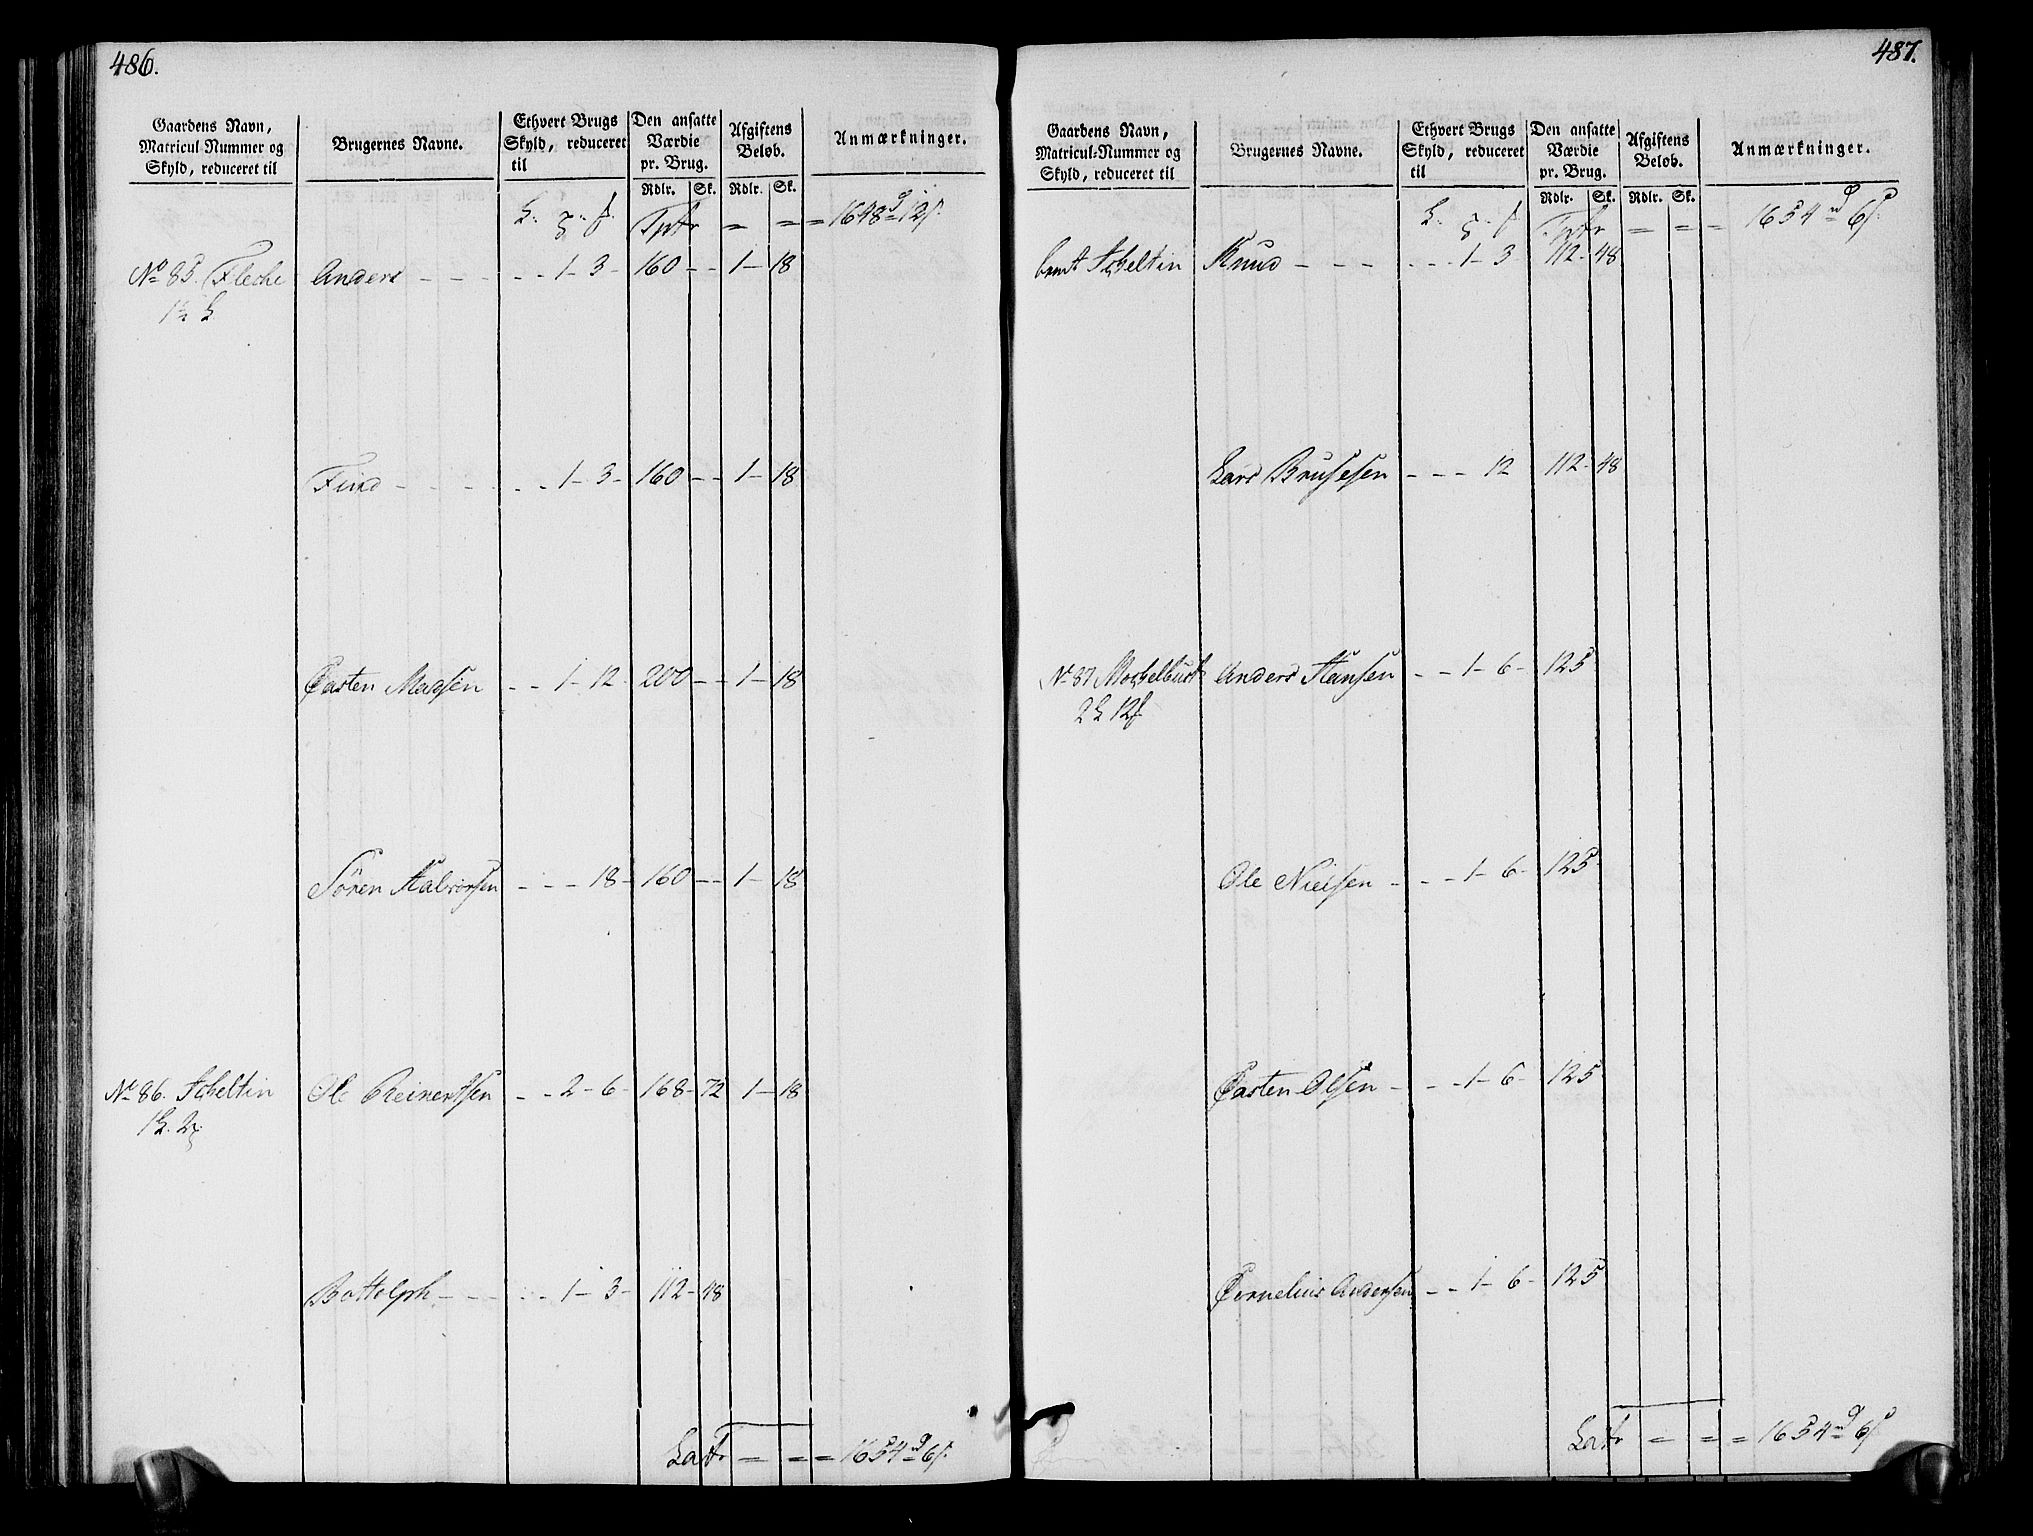 486.
Gaardens Navn, Matricul Nummer og Skyld, reduceret til
Brugernes Navne.
Ethvert Brugs Skyld, reduceret til
Den ansatte Værdie pr. Brug.
Afgiftens Beløb.
Anmærkninger.
Rdlr. Sk. Rdlr. Sk.
Tptr = = = 1648 12
No 85. Fleche Anders - - - - - 1 - 3 - 160 - - 1 - 18
Find - - - - - - 1 - 3 - 160 - - 1 - 18
Casten Madsen - - 1 - 12 - 200 - - 1 - 18
Sören Halvorsen - - - 18 - 160 - - 1 - 18
No 86. Ole Reinertsen - - 2 - 6 - 168 - 72 1 - 18
Bottolph - - - - - 1 - 3 - 112 - 48
Latr = = = 1654 6
487.
Gaardens Navn, Matricul-Nummer og Skyld, reduceret til
Brugernes Navne.
Ethvert Brugs Skyld, reduceret til
Den ansatte Værdie pr. Brug.
Afgiftens Beløb.
Anmærkninger.
Rdlr. Sk. Rdlr. Sk.
Tptr = = = 1654 6
Knud - - - - - - 1 - 3 112 - 48
Lars Brusesen - - - 12 112 - 48
No 87 Anders Hansen - - 1 - 6 - 125
Ole Nielsen - - - 1 - 6 - 125
Casten Olsen - - - 1 - 6 - 125
Cornelius Andersen - - 1 - 6 - 125
Latr = = = 1654 6